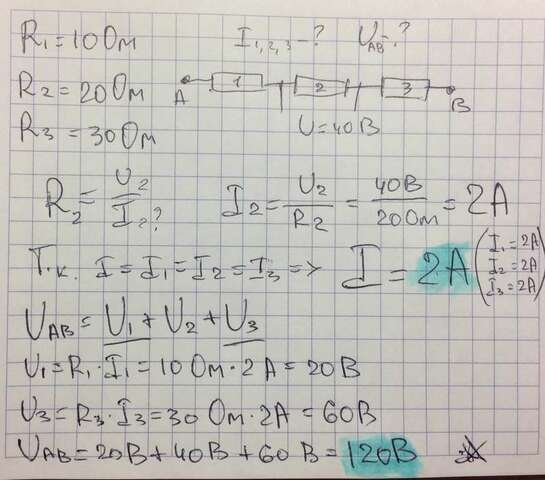 R₁=10Ом
R₂=20Ом
R₃=30Ом
I₁,₂,₃-? U_AB-?
A 1 2 3 B
U=40В
R₂=U₂/I₂? I₂=U₂/R₂=40В/20Ом=2А
Т.к. I=I₁=I₂=I₃=> I=2А (I₁=2А I₂=2А I₃=2А)
U_AB=U₁+U₂+U₃
U₁=R₁·I₁=10Ом·2А=20В
U₃=R₃·I₃=30Ом·2А=60В
U_AB=20В+40В+60В=120В